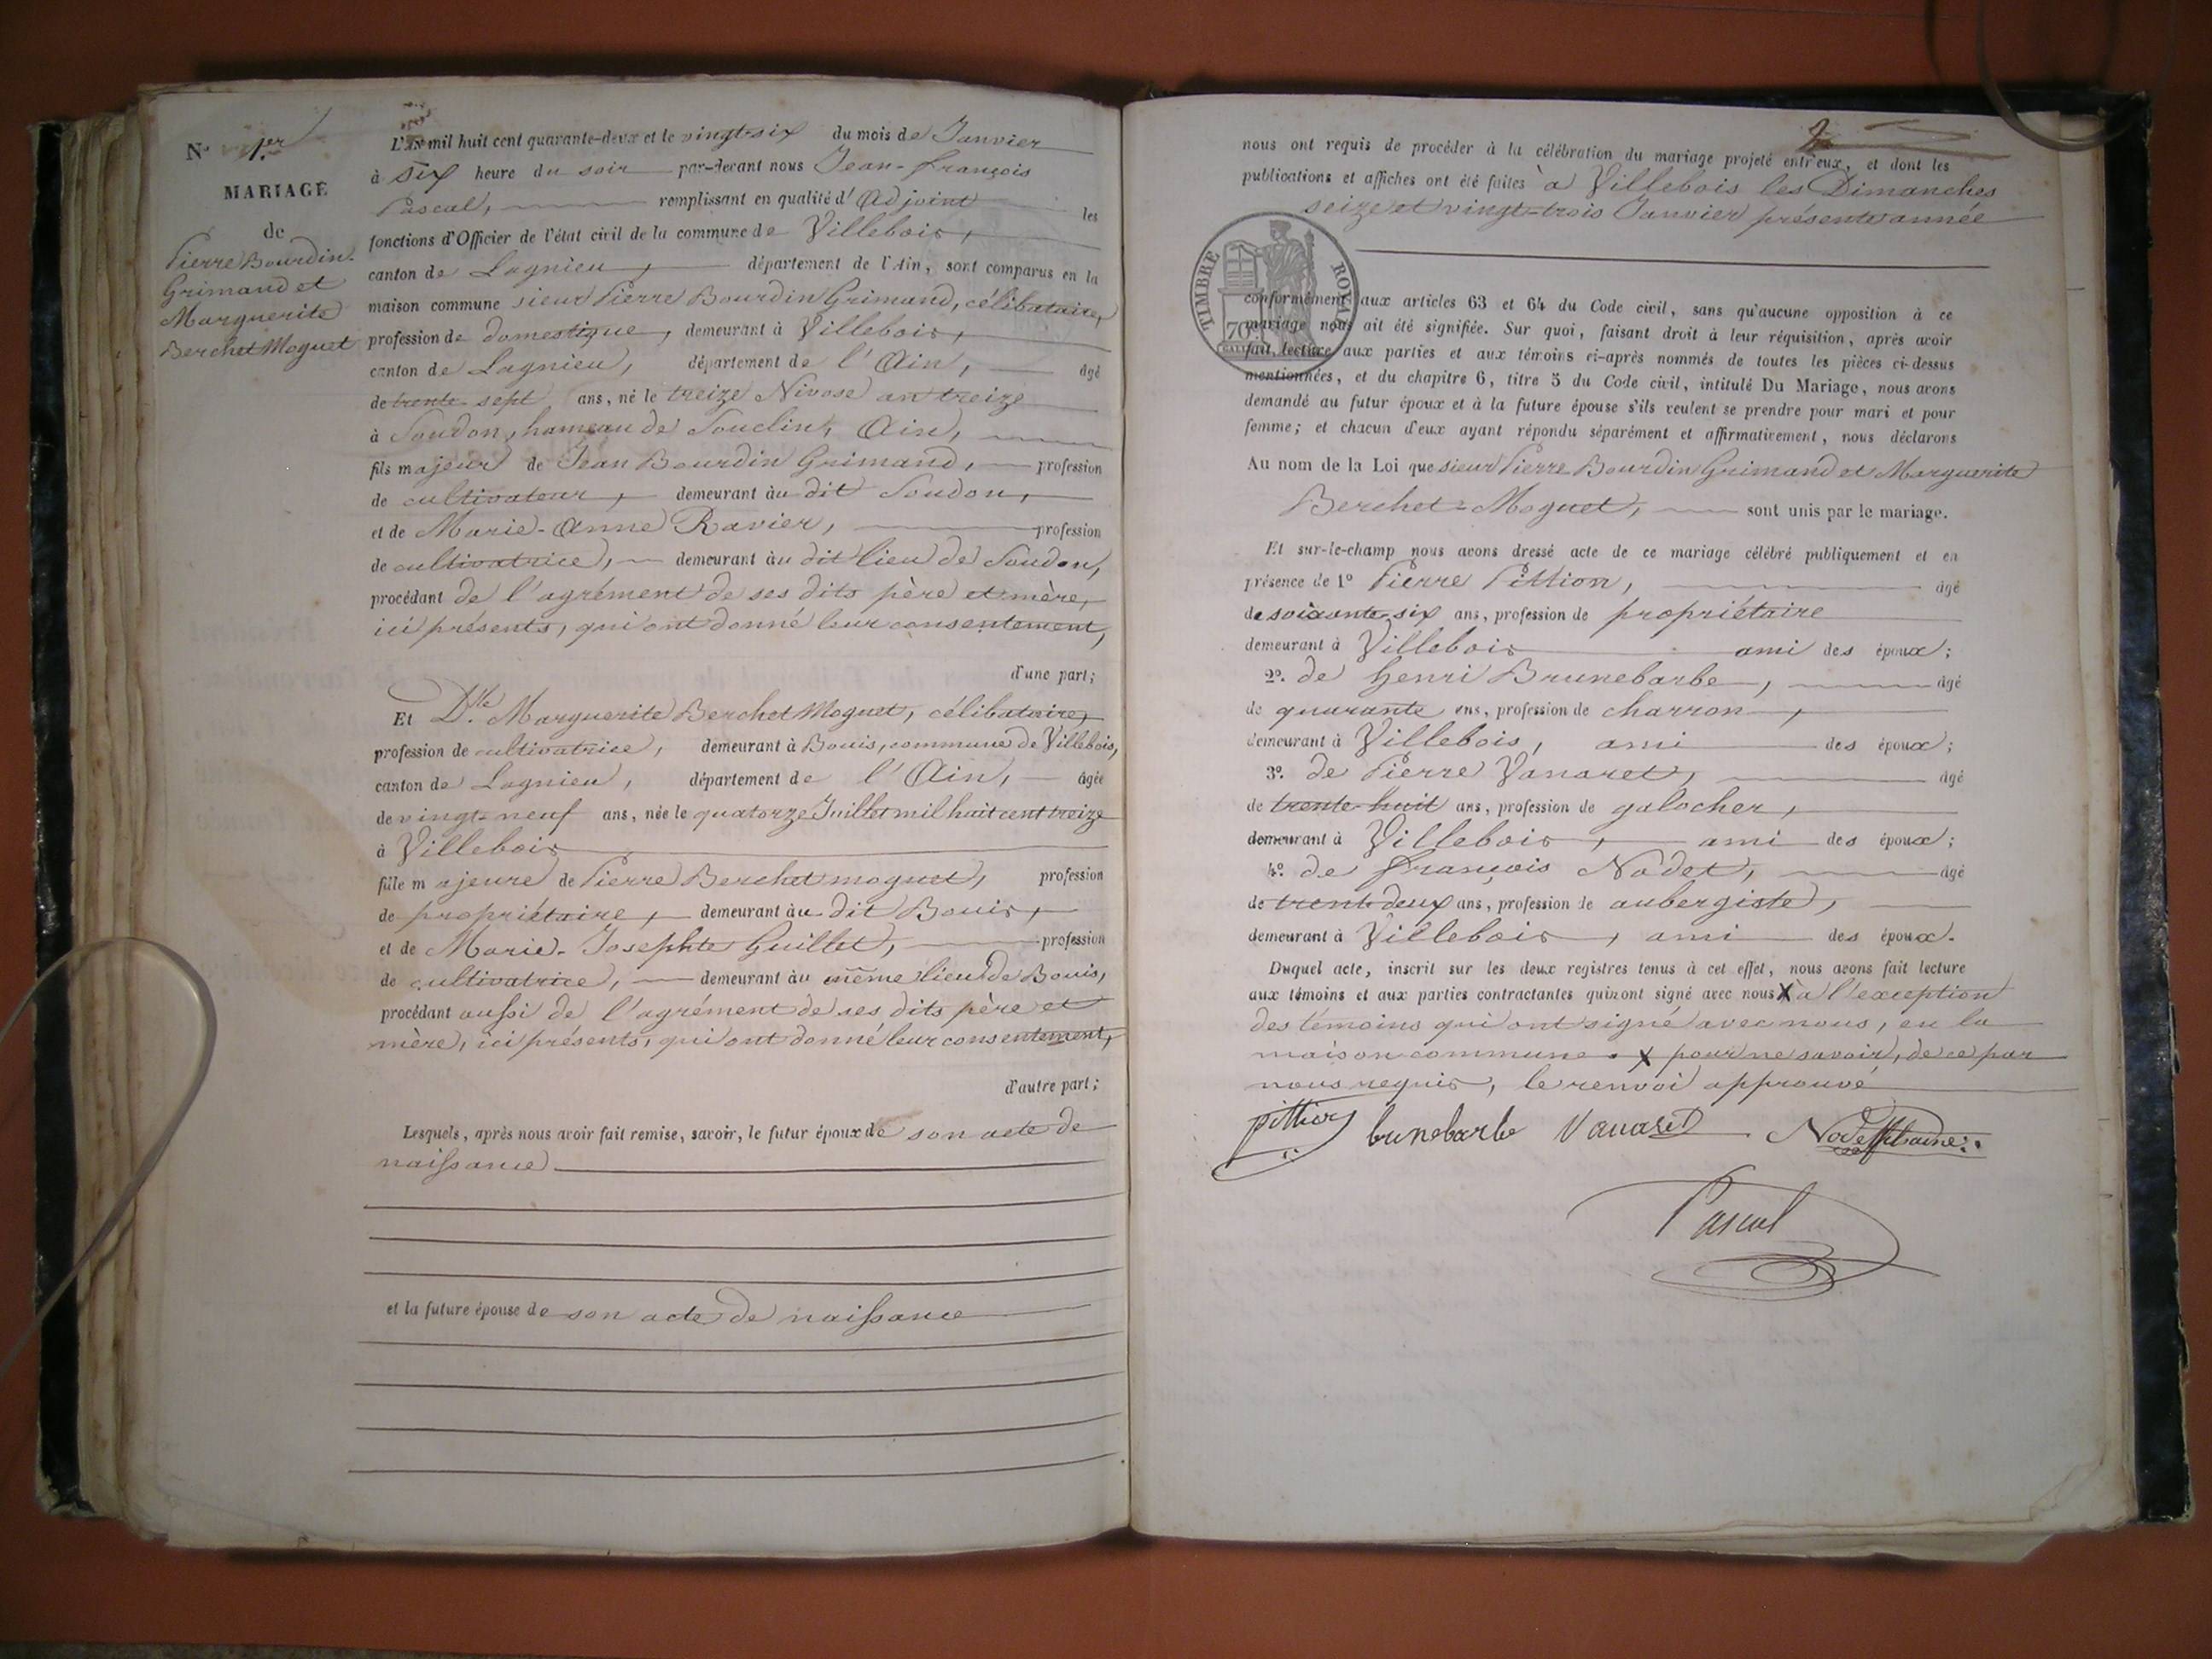 N.o 1.er
MARIAGE
de
Pierre Bourdin
Grimand et
Marguerite
Berchet Moguet
L'AN mil huit cent quarante-deux et le vingt-six du mois de Janvier
à six heure du soir par-devant nous Jean-françois
Pascal, remplissant en qualité d'Adjoint les
fonctions d'Officier de l'état civil de la commune de Villebois,
canton de Lagnieu, département de l'Ain, sont comparus en la
maison commune sieur Pierre Bourdin Grimand, célibataire,
profession de domestique, demeurant à Villebois,
canton de Lagnieu, département de l'Ain, âgé
de trente-sept ans, né le treize Nivose an treize
à Soudon, hameau de Souclin, Ain,
fils majeur de Jean Bourdin Grimand, profession
de cultivateur, demeurant au dit Soudon,
et de Marie-Anne Ravier, profession
de cultivatrice, demeurant au dit lieu de Soudon,
procédant de l'agrément de ses dits père et mère,
ici présents, qui ont donné leur consentement,
d'une part;
Et D.lle Marguerite Berchet Moguet, célibataire,
profession de cultivatrice, demeurant à Bouis, commune de Villebois,
canton de Lagnieu, département de l'Ain, âgée
de vingt-neuf ans, née le quatorze Juillet mil huit cent treize
à Villebois
fille majeure de Pierre Berchet moguet, profession
de propriétaire, demeurant au dit Bouis,
et de Marie-Josephte Guillet, profession
de cultivatrice, demeurant au même lieu de Bouis,
procédant aussi de l'agrément de ses dits père et
mère, ici présents, qui ont donné leur consentement,
d'autre part;
Lesquels, après nous avoir fait remise, savoir, le futur époux de son acte de
naissance
et la future épouse de son acte de naissance
2
nous ont requis de procéder à la célébration du mariage projeté entr'eux, et dont les
publications et affiches ont été faites à Villebois les Dimanches
seize et vingt-trois Janvier présente année
TIMBRE ROYAL
70
conformément aux articles 63 et 64 du Code civil, sans qu'aucune opposition à ce
mariage nous ait été signifiée. Sur quoi, faisant droit à leur réquisition, après avoir
fait lecture aux parties et aux témoins ci-après nommés de toutes les pièces ci-dessus
mentionnées, et du chapitre 6, titre 5 du Code civil, intitulé Du Mariage, nous avons
demandé au futur époux et à la future épouse s'ils veulent se prendre pour mari et pour
femme; et chacun d'eux ayant répondu séparément et affirmativement, nous déclarons
Au nom de la Loi que sieur Pierre Bourdin Grimand et Marguerite
Berchet-Moguet, sont unis par le mariage.
Et sur-le-champ nous avons dressé acte de ce mariage célébré publiquement et en
présence de 1º Pierre Pittion, âgé
de soixante-six ans, profession de propriétaire
demeurant à Villebois ami des époux;
2º. de henri Brunebarbe, âgé
de quarante ans, profession de charron,
demeurant à Villebois, ami des époux;
3º. de Pierre Vanaret, âgé
de trente-huit ans, profession de galocher,
demeurant à Villebois, ami des époux;
4º. de françois Nodet, âgé
de trente-deux ans, profession de aubergiste,
demeurant à Villebois, ami des époux.
Duquel acte, inscrit sur les deux registres tenus à cet effet, nous avons fait lecture
aux témoins et aux parties contractantes qui n'ont signé avec nous X à l'exception
des témoins qui ont signé avec nous, en la
maison commune. X pour ne savoir, de ce par
nous requis, le renvoi approuvé
pittion brunebarbe Vanaret
Pascal